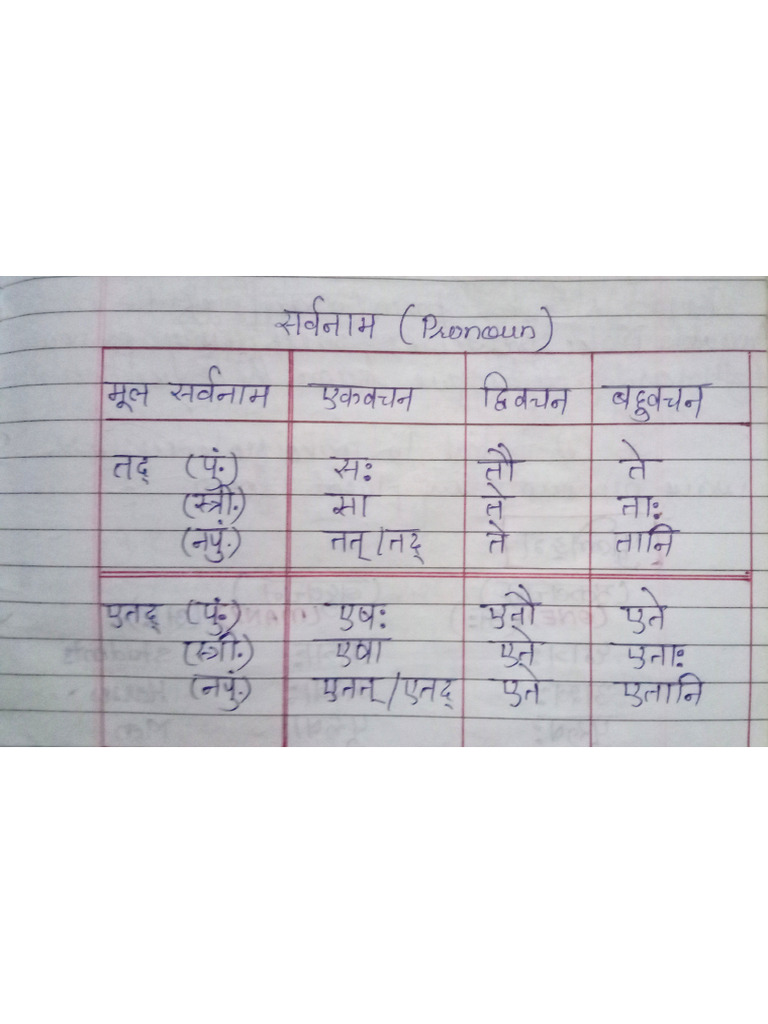 सर्वनाम (Pronoun)
मूल सर्वनाम एकवचन द्विवचन बहुवचन
तद् (पुं.) सः तौ ते
(स्त्री.) सा ते ताः
(नपुं.) तत्/तद् ते तानि
एतद् (पुं.) एषः एतौ एते
(स्त्री.) एषा एते एताः
(नपुं.) एतत्/एतद् एते एतानि